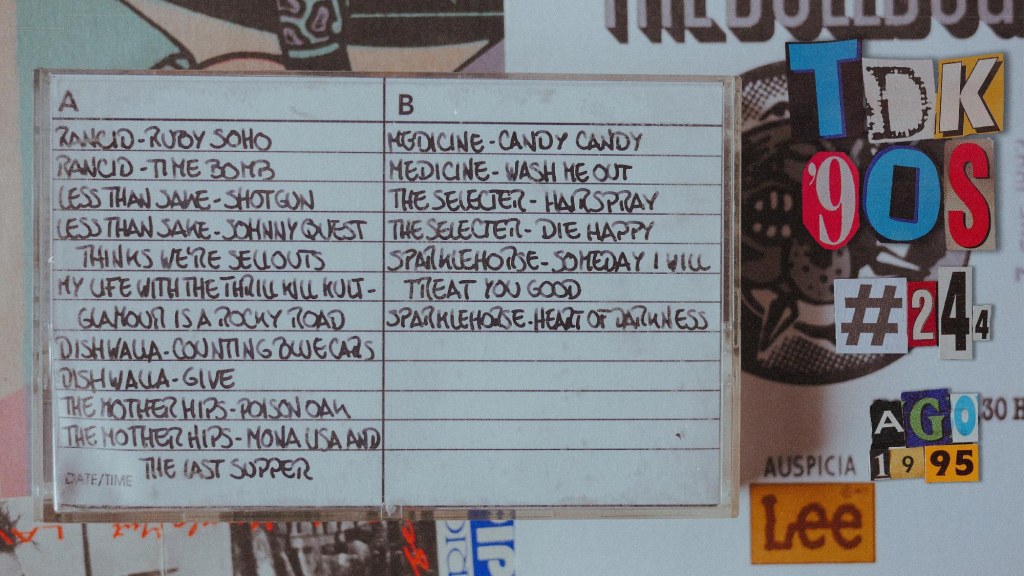 THE BULLDOG
A
RANCID-RUBY SOHO
RANCID-TIME BOMB
LESS THAN JAKE-SHOTGUN
LESS THAN JAKE-JOHNNY QUEST
THINKS WE'RE SELLOUTS
MY LIFE WITH THE THRILL KILL KULT-
GLAMOUR IS A ROCKY ROAD
DISHWALLA-COUNTING BLUE CARS
DISHWALLA-GIVE
THE MOTHER HIPS-POISON OAK
THE MOTHER HIPS-MONA LISA AND
THE LAST SUPPER
DATE/TIME
B
MEDICINE-CANDY CANDY
MEDICINE-WASH ME OUT
THE SELECTER-HAIRSPRAY
THE SELECTER-DIE HAPPY
SPARKLEHORSE-SOMEDAY I WILL
TREAT YOU GOOD
SPARKLEHORSE-HEART OF DARKNESS
TDK
'90S
#244
AGO
1995
30 H
AUSPICIA
Lee